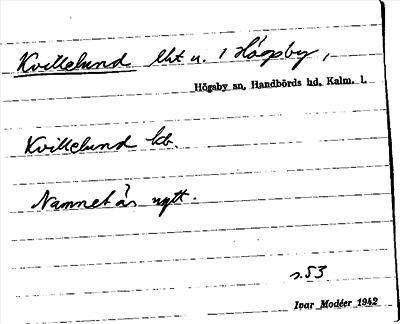 Kvillelund lht u. 1 Högsby,
Högsby sn, Handbörds hd, Kalm. l.
Kvillelund kb.
Namnet är nytt.
s.53
Ivar Modéer 1942